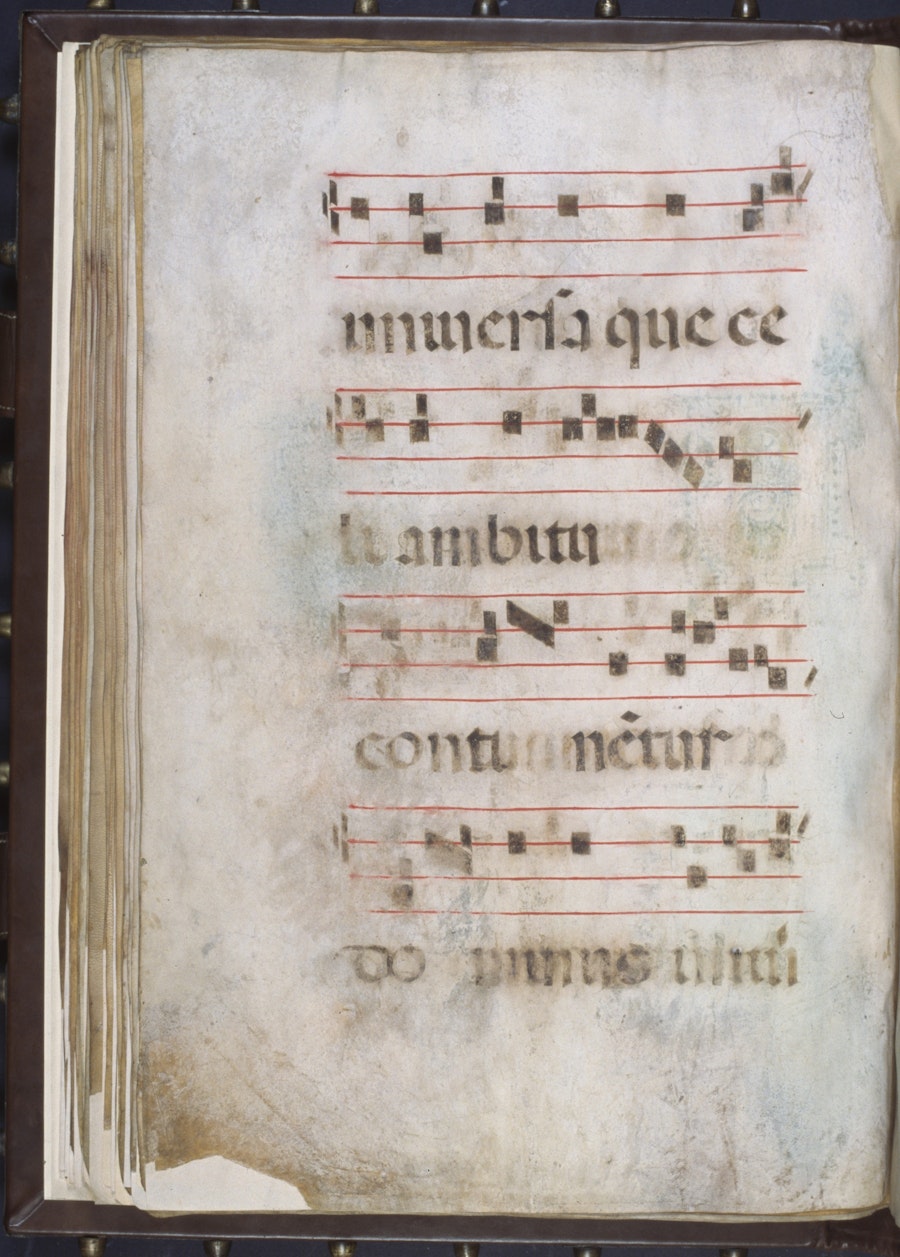 uniuersa que ce
li ambitu
continētur
dominus uirtu